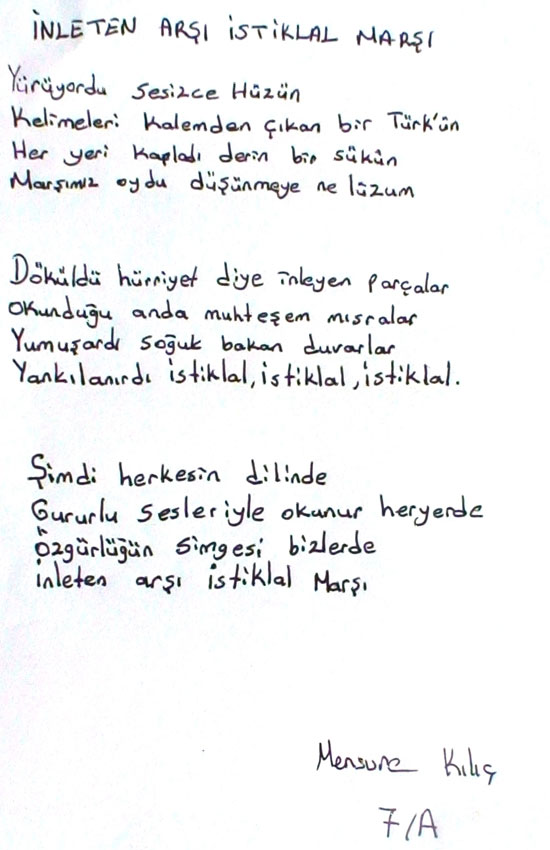 İNLETEN ARŞI İSTİKLAL MARŞI
Yürüyordu sesizce Hüzün
Kelimeleri kalemden çıkan bir Türk'ün
Her yeri kapladı derin bir sükün
Marşımız oydu düşünmeye ne lüzum
Döküldü hürriyet diye inleyen parçalar
Okunduğu anda muhteşem mısralar
Yumuşardı soğuk bakan duvarlar
Yankılanırdı istiklal, istiklal, istiklal.
Şimdi herkesin dilinde
Gururlu sesleriyle okunur heryerde
Özgürlüğün simgesi bizlerde
inleten arşı istiklal Marşı
Mensure Kılıç
7/A